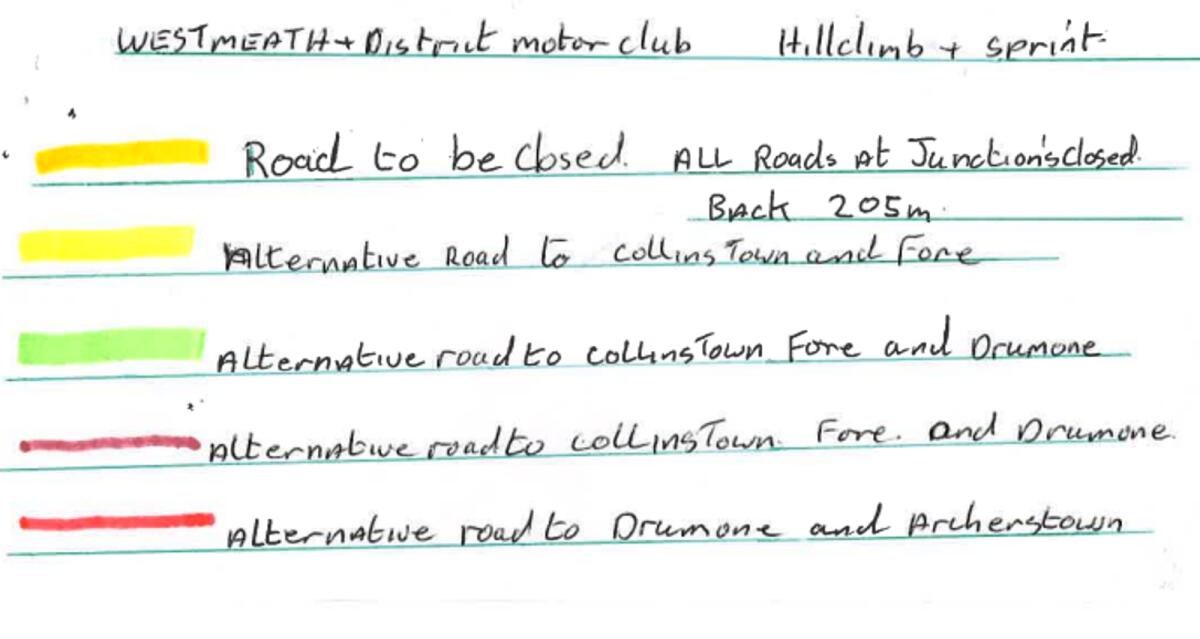 WESTMEATH + District motor club Hillclimb + sprint
Road to be Closed. ALL Roads At Junction's closed.
Back 205m.
Alternative Road to CollinsTown and Fore
Alternative road to CollinsTown Fore and Drumone
Alternative road to CollinsTown. Fore. and Drumone.
Alternative road to Drumone and Archerstown